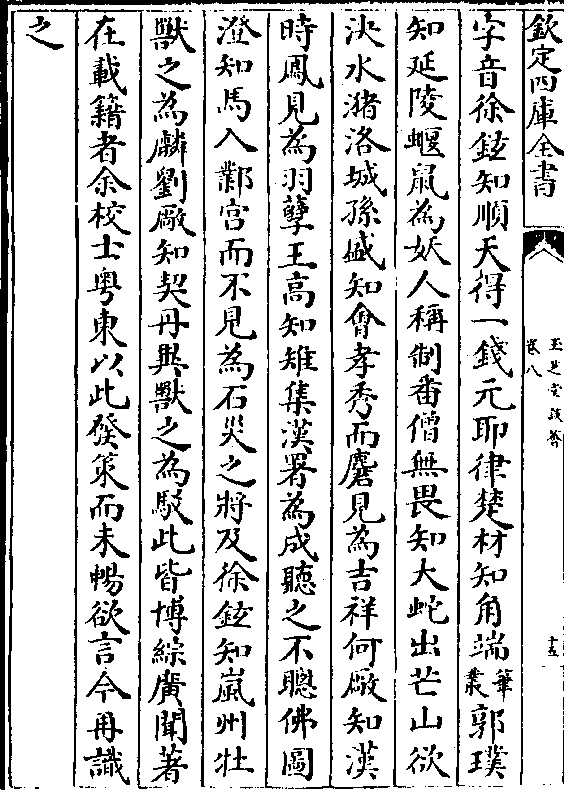 欽定四庫全書
玉芝堂談薈
卷八
十五
字音徐鉉知順天得一錢元耶律楚材知角端筆叢郭璞
知延陵蝘鼠為妖人稱制番僧無畏知大蛇出芒山欲
決水瀦洛城孫盛知會孝秀而麏見為吉祥何敞知漢
時鳳見為羽孽王高知雉集漢署為成聽之不聰佛圖
澄知馬入鄴宫而不見為石災之將及徐鉉知嵐州牡
獸之為麟劉敞知契丹異獸之為駁此皆博綜廣聞著
在載籍者余校士粤東以此發策而未暢欲言今再識
之